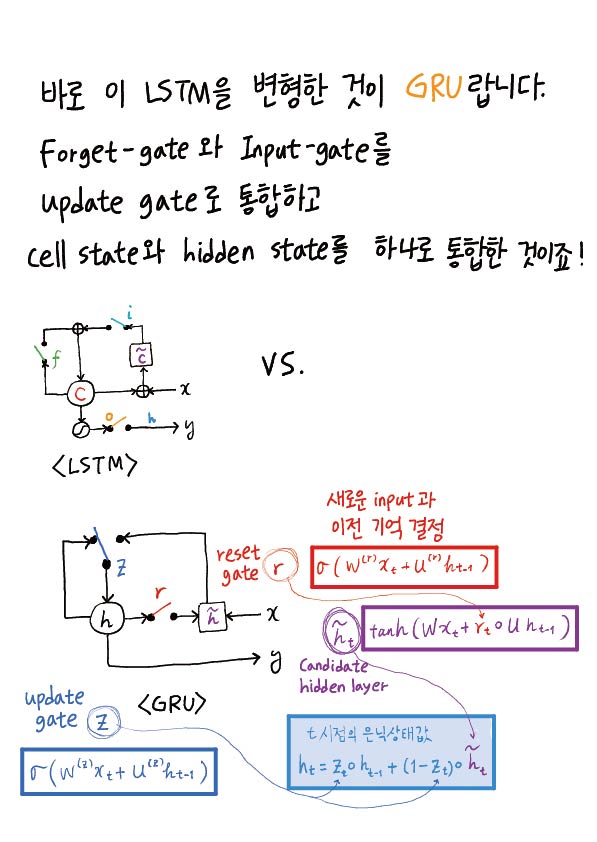 바로 이 LSTM을 변형한 것이 GRU랍니다.
Forget-gate와 Input-gate를
update gate로 통합하고
cell state와 hidden state를 하나로 통합한 것이죠!
i
f
c̃
C
x
o
h
y
<LSTM>
VS.
새로운 input과
이전 기억 결정
reset
gate
r
σ(W⁽ʳ⁾xₜ+U⁽ʳ⁾hₜ₋₁)
z
r
h
h̃
x
y
<GRU>
h̃ₜ
tanh(Wxₜ+rₜ∘Uhₜ₋₁)
Candidate
hidden layer
update
gate
z
σ(W⁽ᶻ⁾xₜ+U⁽ᶻ⁾hₜ₋₁)
t시점의 은닉상태값
hₜ=zₜ∘hₜ₋₁+(1-zₜ)∘h̃ₜ